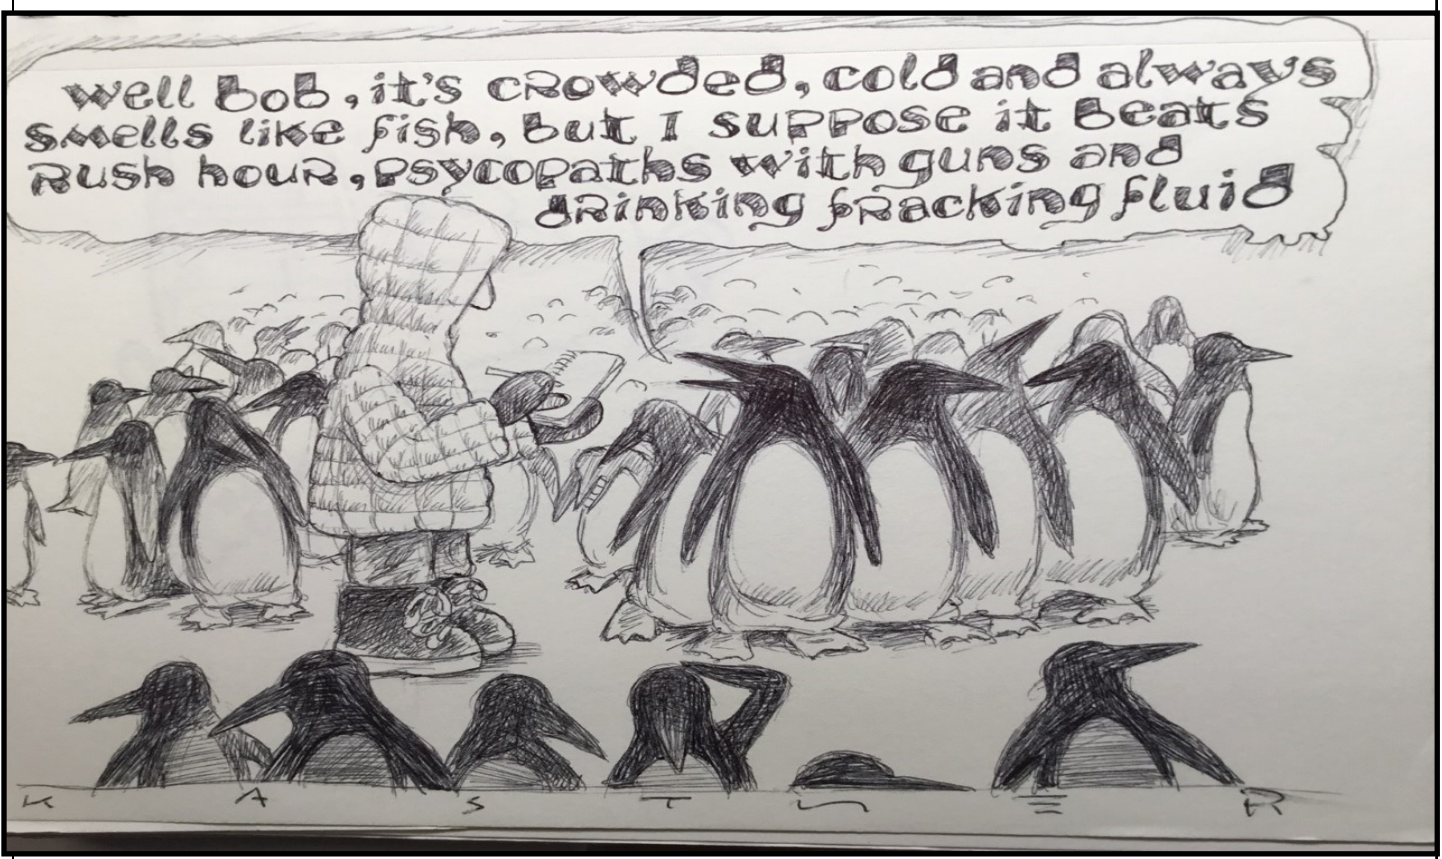 well bob, it's crowded, cold and always
smells like fish, but I suppose it beats
Rush hour, psycopaths with guns and
drinking fracking fluid
K A S T N E R